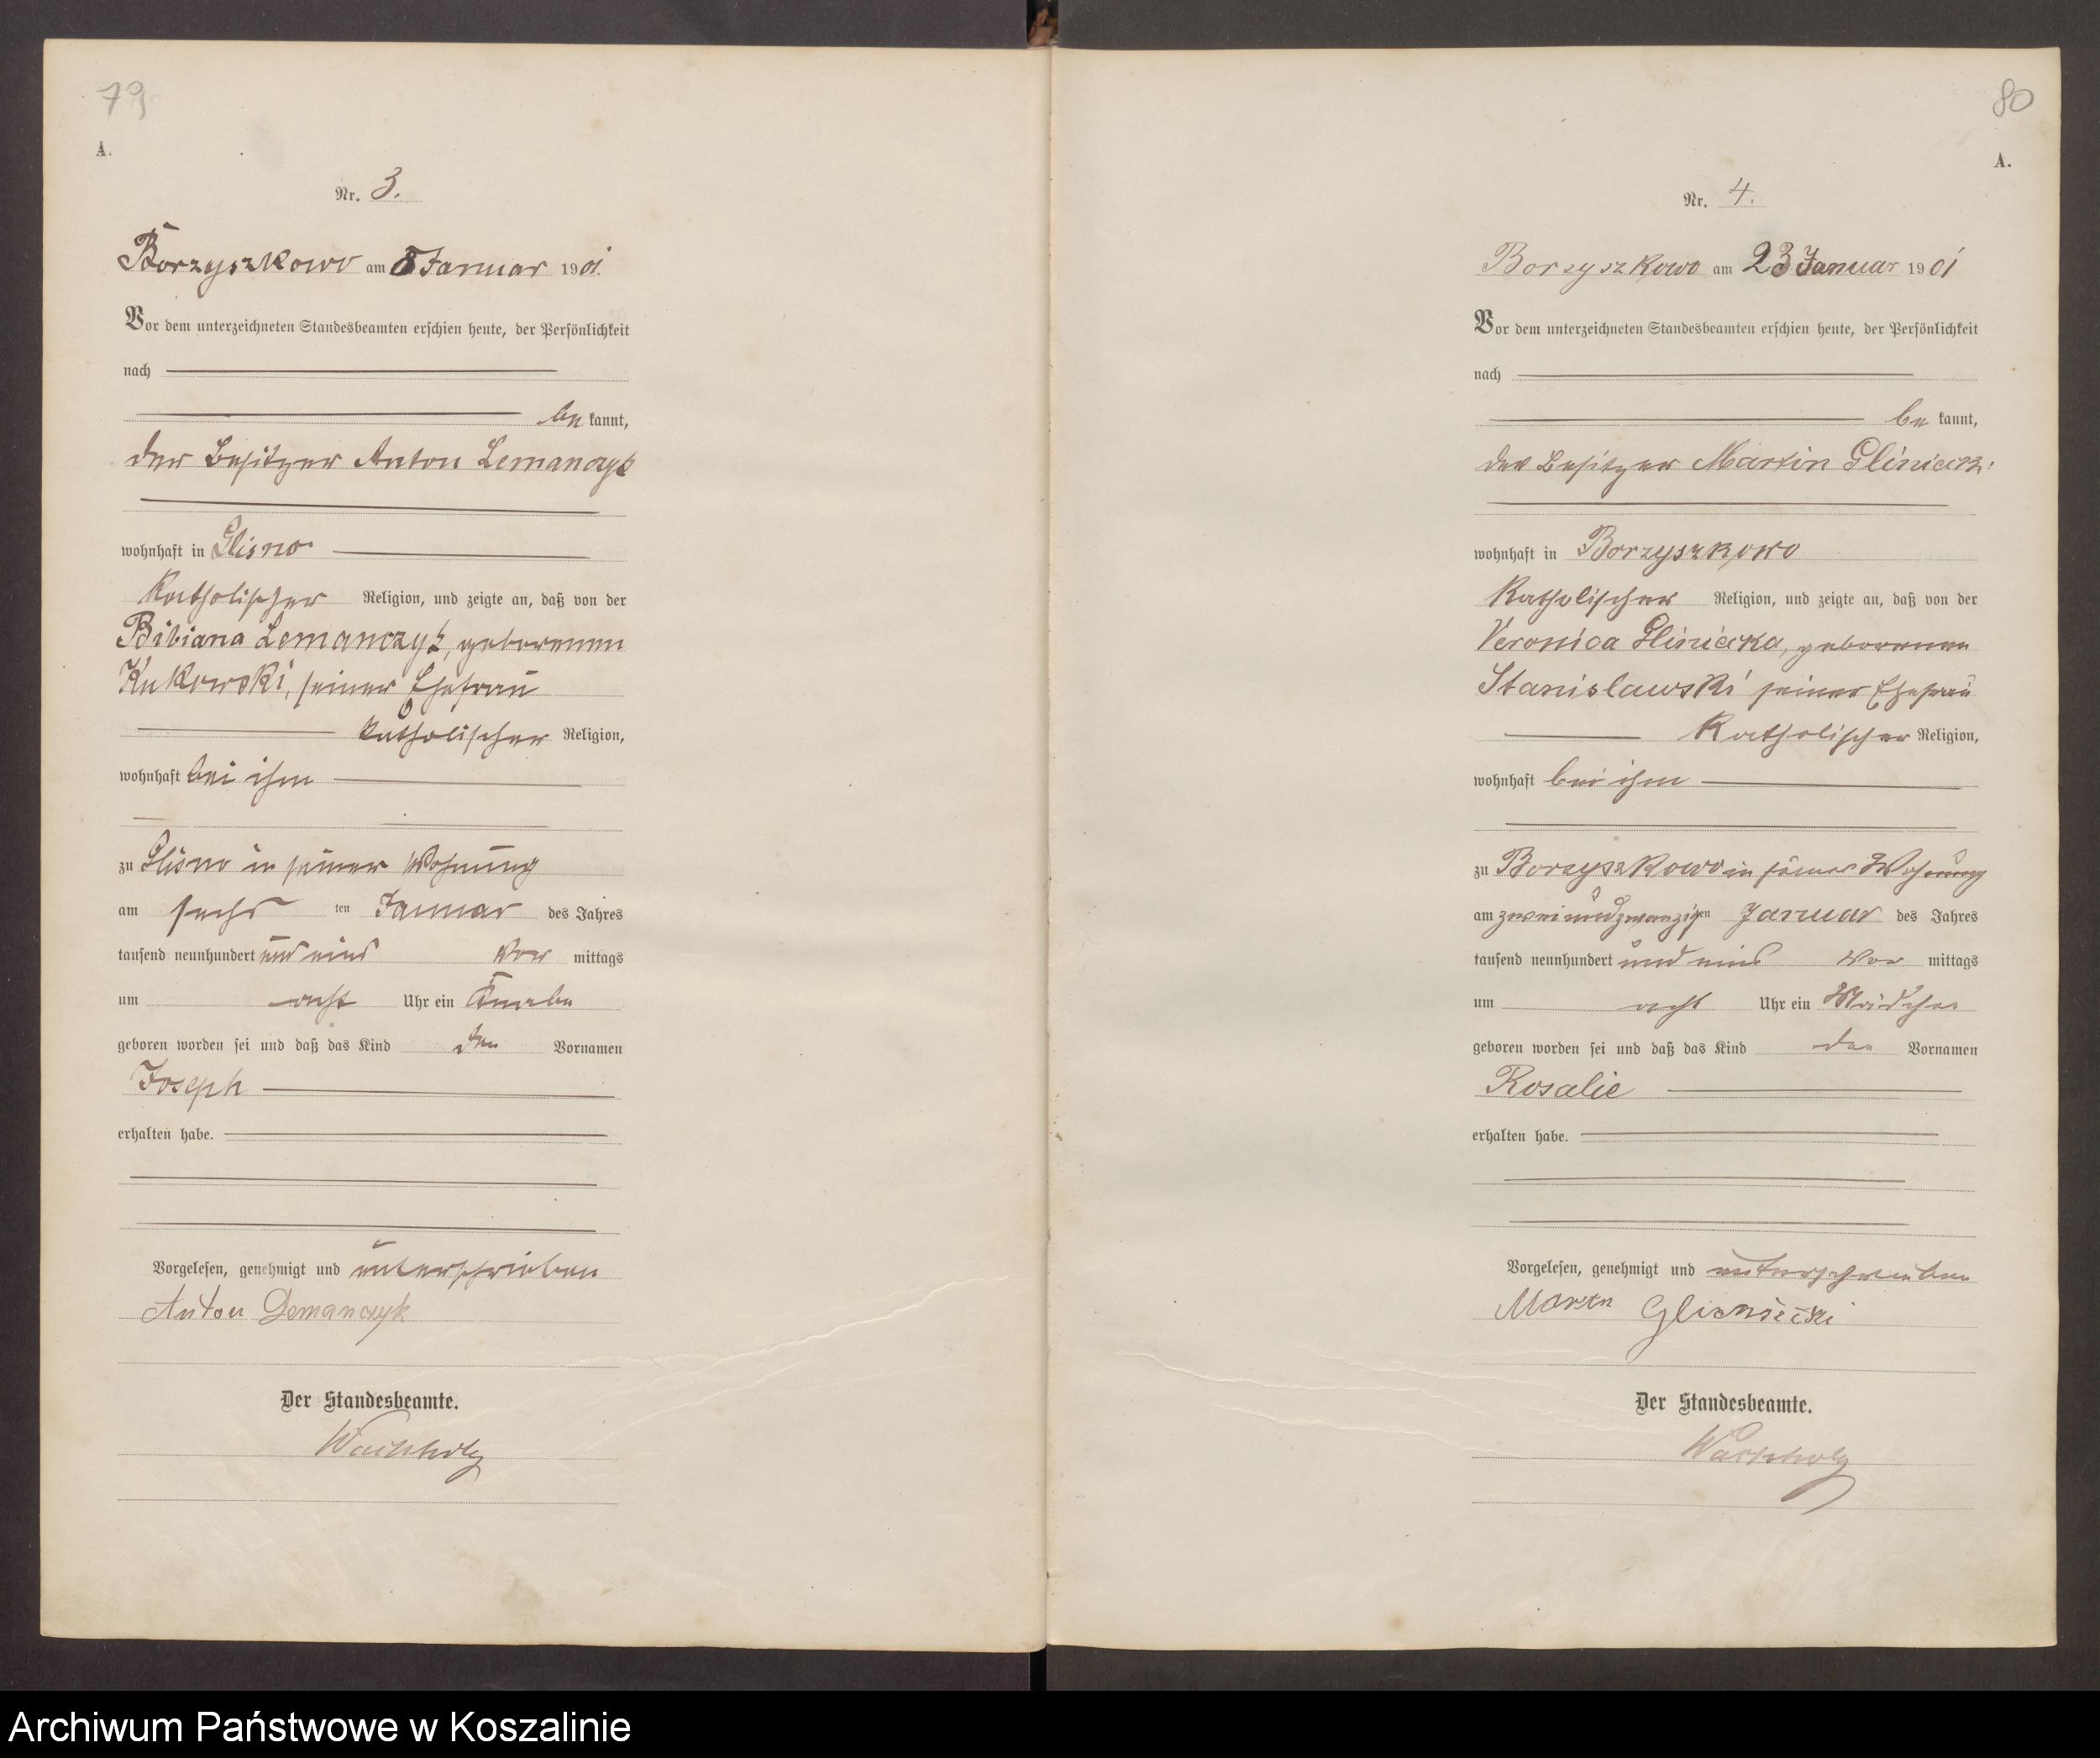 79
A.
Nr. 3.
Borzyszkowo am 8 Januar 1901.
Vor dem unterzeichneten Standesbeamten erschien heute, der Persönlichkeit
nach
be kannt,
der Besitzer Anton Lemanczyk
wohnhaft in Glisno
Katholischer Religion, und zeigte an, daß von der
Bibiana Lemanczyk, geborenen
Kukowski, seiner Ehefrau
katholischer Religion,
wohnhaft bei ihm
zu Glisno in seiner Wohnung
am sechs ten Januar des Jahres
tausend neunhundert und eins Vor mittags
um acht Uhr ein Knabe
geboren worden sei und daß das Kind den Vornamen
Joseph
erhalten habe.
Vorgelesen, genehmigt und unterschrieben
Anton Lemanczyk
Der Standesbeamte.
80
A.
Nr. 4.
Borzyszkowo am 23 Januar 1901
Vor dem unterzeichneten Standesbeamten erschien heute, der Persönlichkeit
nach
be kannt,
der Besitzer Martin Gliniecki
wohnhaft in Borzyszkowo
Katholischer Religion, und zeigte an, daß von der
Veronica Gliniecka, geborenen
Stanislawski seiner Ehefrau
Katholischer Religion,
wohnhaft bei ihm
zu Borzyszkowo in seiner Wohnung
am zweiundzwanzigsten Januar des Jahres
tausend neunhundert und eins Vor mittags
um acht Uhr ein Mädchen
geboren worden sei und daß das Kind den Vornamen
Rosalie
erhalten habe.
Vorgelesen, genehmigt und unterschrieben
Der Standesbeamte.
Archiwum Państwowe w Koszalinie